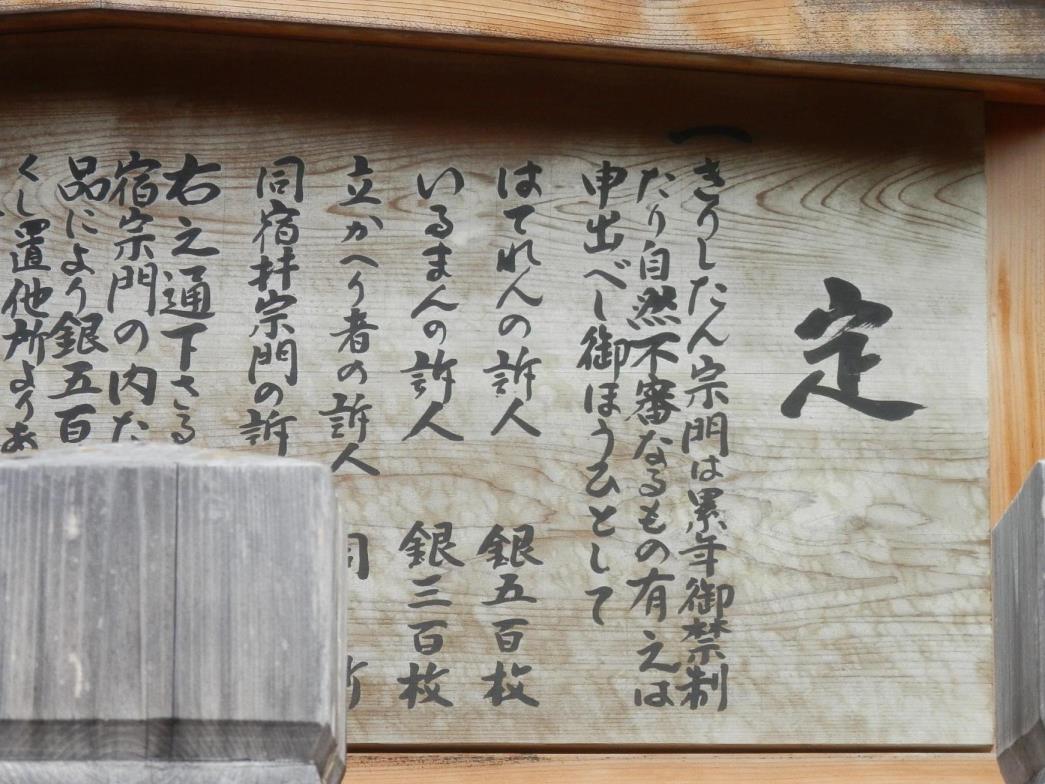 定
一
きりしたん宗門は累年御禁制
たり自然不審なるもの有之は
申出べし御ほうひとして
はてれんの訴人 銀五百枚
いるまんの訴人 銀三百枚
立かへり者の訴人 同 断
同宿并宗門の訴
右之通下さる
宿宗門の内た
品により銀五百
くし置他所よりあ